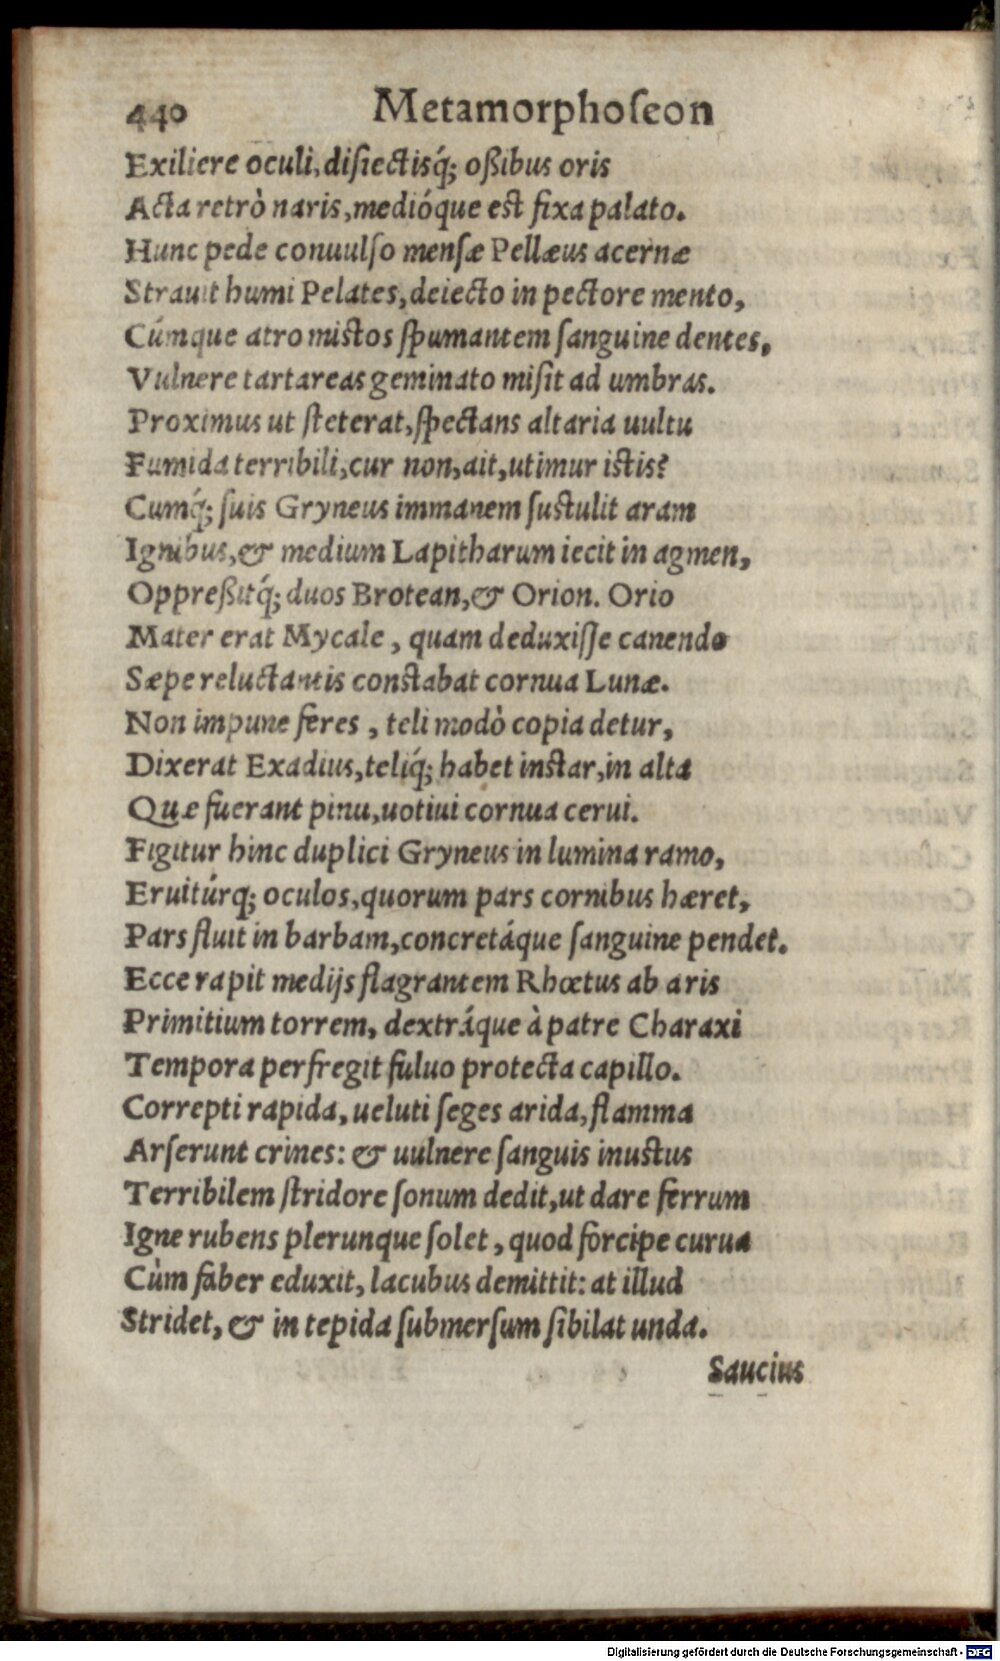 440 Metamorphoſeon
Exiliere oculi, diſiectisq́; oßibus oris
Acta retrò naris, medióque est fixa palato.
Hunc pede conuulſo menſæ Pellæus acernæ
Strauit humi Pelates, deiecto in pectore mento,
Cúmque atro mistos ſpumantem ſanguine dentes,
Vulnere tartareas geminato miſit ad umbras.
Proximus ut ſteterat, ſpectans altaria uultu
Fumida terribili, cur non, ait, utimur istis?
Cumq́; ſuis Gryneus immanem ſustulit aram
Ignibus, & medium Lapitharum iecit in agmen,
Oppreßitq́; duos Brotean, & Orion. Orio
Mater erat Mycale, quam deduxiſſe canendo
Sæpe reluctantis constabat cornua Lunæ.
Non impune feres, teli modò copia detur,
Dixerat Exadius, teliq́; habet instar, in alta
Quæ fuerant pinu, uotiui cornua cerui.
Figitur hinc duplici Gryneus in lumina ramo,
Eruitúrq; oculos, quorum pars cornibus hæret,
Pars fluit in barbam, concretáque ſanguine pendet.
Ecce rapit medijs flagrantem Rhœtus ab aris
Primitium torrem, dextráque à patre Charaxi
Tempora perfregit fuluo protecta capillo.
Correpti rapida, ueluti ſeges arida, flamma
Arſerunt crines: & uulnere ſanguis inustus
Terribilem ſtridore ſonum dedit, ut dare ferrum
Igne rubens plerunque ſolet, quod forcipe curua
Cùm faber eduxit, lacubus demittit: at illud
Stridet, & in tepida ſubmerſum ſibilat unda.
Saucius
Digitalisierung gefördert durch die Deutsche Forschungsgemeinschaft - DFG